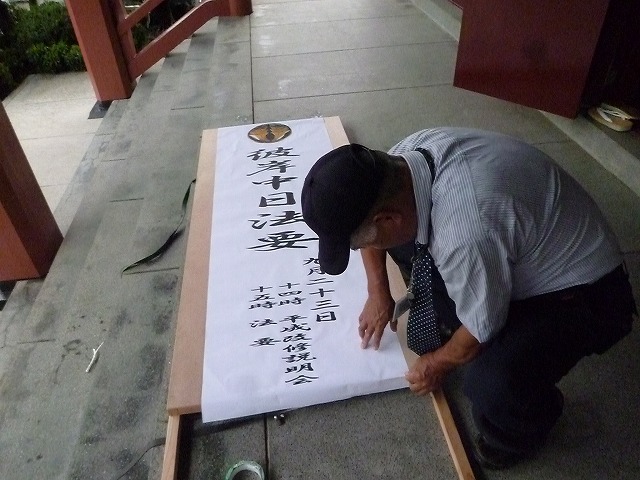 彼岸中日法要
九月二十三日
十四時 平成改修説明会
十五時 法要